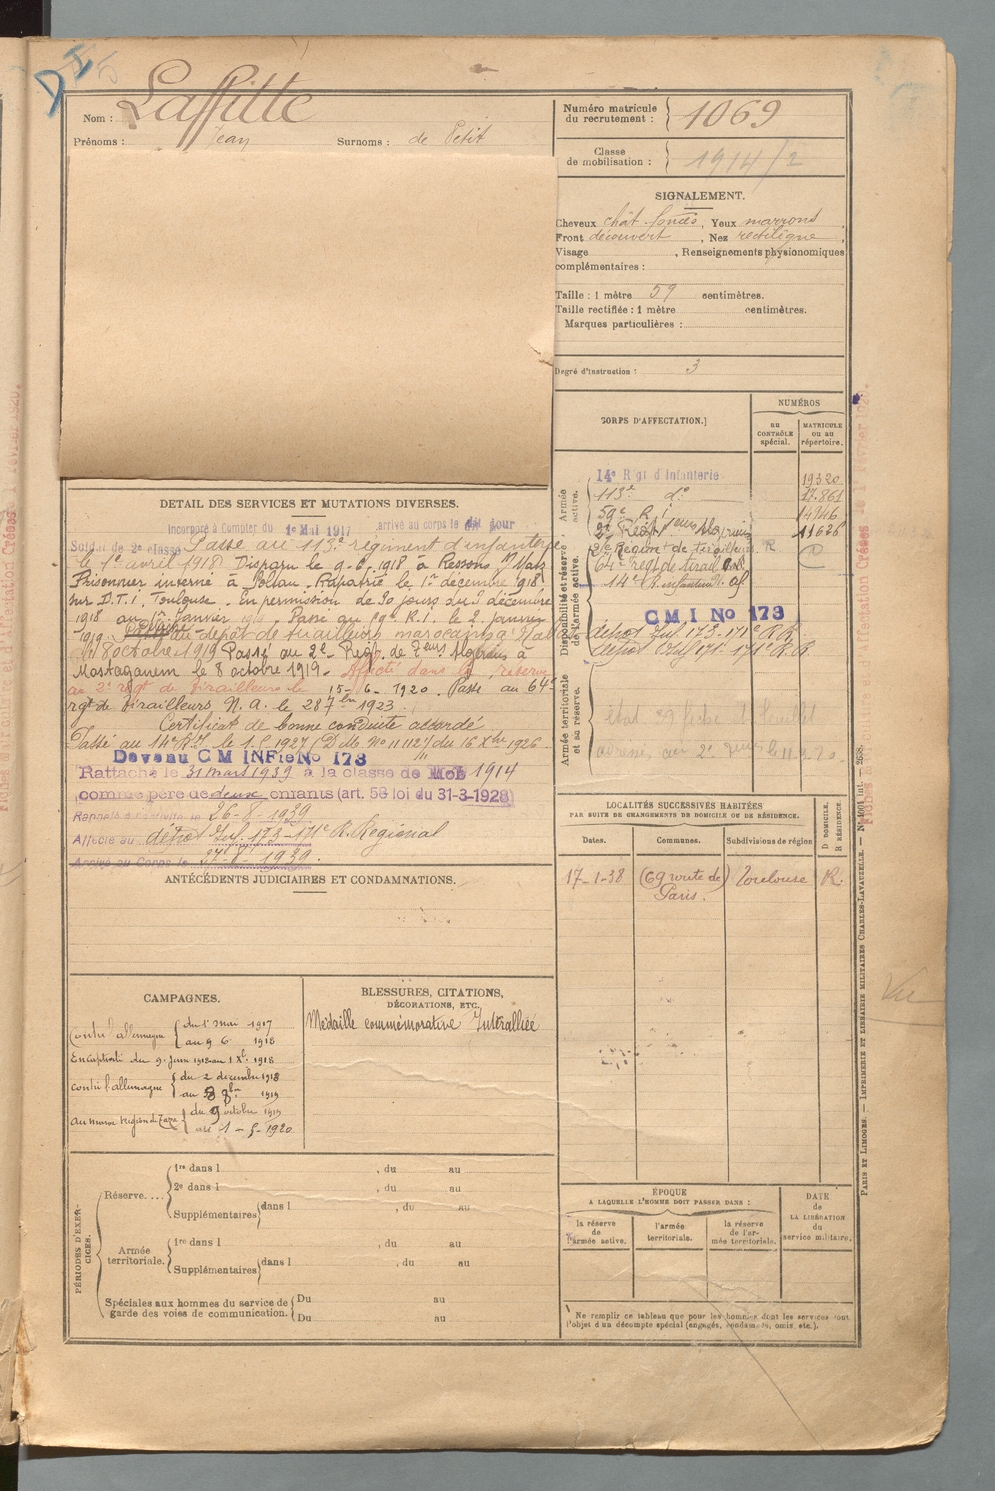 Nom : Laffitte
Prénoms : Jean Surnoms : de Petit
Numéro matricule du recrutement : 1069
Classe de mobilisation : 1914/2
SIGNALEMENT.
Cheveux chât. foncés, Yeux marrons
Front découvert, Nez rectiligne,
Visage , Renseignements physionomiques
complémentaires :
Taille : 1 mètre 59 centimètres.
Taille rectifiée : 1 mètre centimètres.
Marques particulières :
Degré d'instruction : 3
CORPS D'AFFECTATION.
NUMÉROS
au CONTRÔLE spécial.
MATRICULE ou au répertoire.
Armée active.
14e Régt d'Infanterie 19320
113e do 17.861
59e R.I 14746
11626
64e régt de tirail.
14e R. infanterie
Disponibilité et réserve de l'armée active.
CMI No 173
Armée territoriale et sa réserve.
DETAIL DES SERVICES ET MUTATIONS DIVERSES.
Incorporé à Compter du 1er Mai 1917 arrivé au corps le dit jour
Soldat de 2e classe Passé au 113e régiment d'infanterie
le 1er avril 1918. Disparu le 9-6-1918 à Ressons s/ Matz
Prisonnier interné à . Rapatrié le 1er décembre 1918
sur D.T.I. Toulouse. En permission de 30 jours du 3 décembre
1918 au janvier 1919. Passé au 59e R.I. le 2 janvier
1919. au dépôt de tirailleurs marocains à
8 octobre 1919 Passé au 2e Régt. de Algériens à
Mostaganem le 8 octobre 1919. Affecté dans la réserve
au 2e régt de Tirailleurs le 15-6-1920. Passé au 64e
rgt de Tirailleurs N. A. le 28 7bre 1923.
Certificat de bonne conduite accordé
Passé au 14e R.I. le 1.5.1927 (D.M. No 11112/ du 16 Xbre 1926
Devenu CM INFie No 173
Rattaché le 31 mars 1939 à la classe de Mob 1914
comme père de deux enfants (art. 58 loi du 31-3-1928)
Rappelé à l'activité le 26-8-1939
Affecté au dépôt Inf. 173-171e R. Régional
Arrivé au Corps le 27-8-1939.
ANTÉCÉDENTS JUDICIAIRES ET CONDAMNATIONS.
LOCALITÉS SUCCESSIVES HABITÉES
PAR SUITE DE CHANGEMENTS DE DOMICILE OU DE RÉSIDENCE.
Dates. Communes. Subdivisions de région D. DOMICILE. R. RÉSIDENCE.
17-1-38 (69 route de Paris. Toulouse R.
CAMPAGNES.
Contre l'allemagne du 1er mai 1917
au 9 6 1918
En captivité du 9 Juin 1918 au 1 Xbre 1918
Contre l'allemagne du 2 décembre 1918
au 8 8bre 1919
Au maroc Région de Taza du 9 octobre 1919
au 1-5-1920
BLESSURES, CITATIONS, DÉCORATIONS, ETC.
Médaille commémorative Interalliée
PÉRIODES D'EXERCICES.
Réserve....
1re dans l , du au
2e dans l , du au
Supplémentaires dans l , du au
Armée territoriale.
1re dans l , du au
Supplémentaires dans l , du au
Spéciales aux hommes du service de garde des voies de communication.
Du au
Du au
ÉPOQUE
A LAQUELLE L'HOMME DOIT PASSER DANS :
la réserve de l'armée active.
l'armée territoriale.
la réserve de l'armée territoriale.
DATE de LA LIBÉRATION du service militaire.
Ne remplir ce tableau que pour les hommes dont les services font
l'objet d'un décompte spécial (engagés, condamnés, omis, etc.).
PARIS ET LIMOGES. — IMPRIMERIE ET LIBRAIRIE MILITAIRES CHARLES-LAVAUZELLE.
Vu